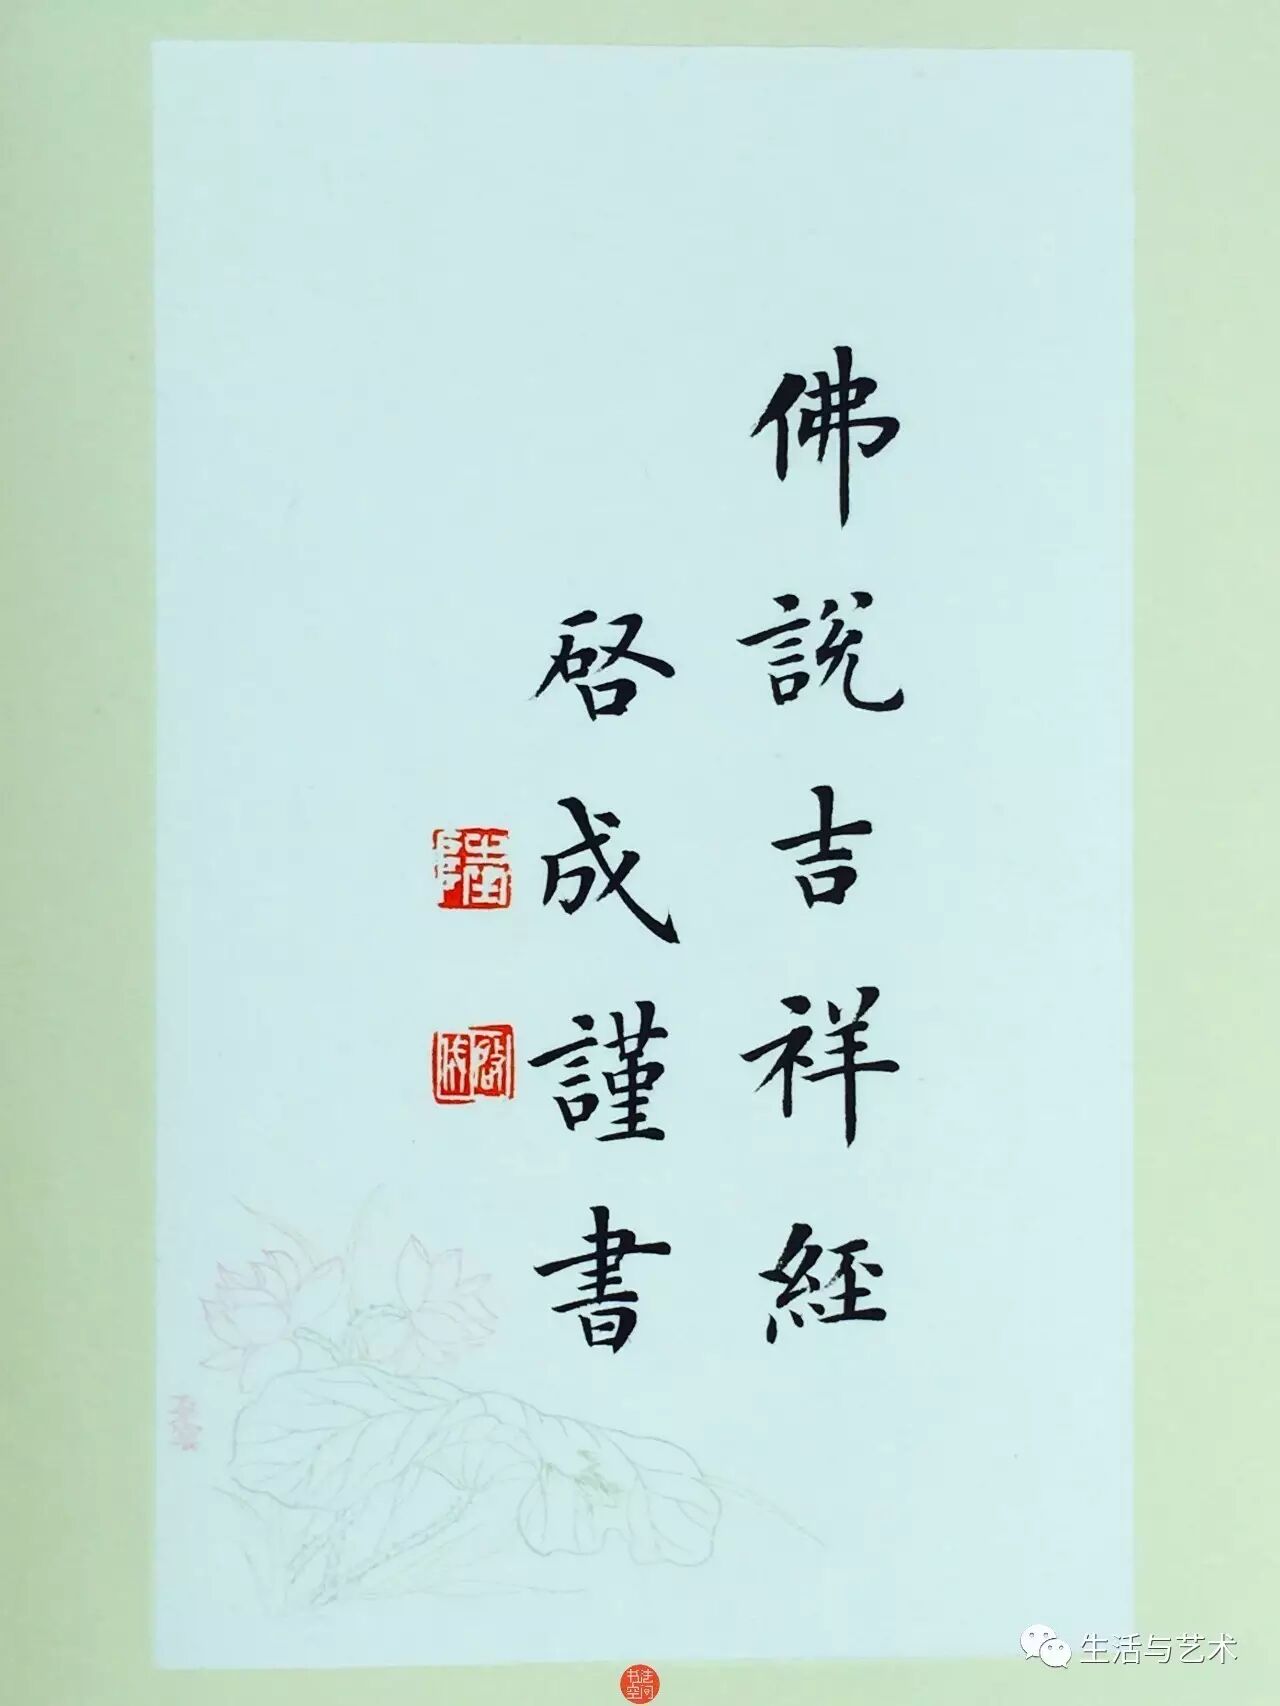 佛說吉祥經
啓成謹書
啓成
生活与艺术
书法空间